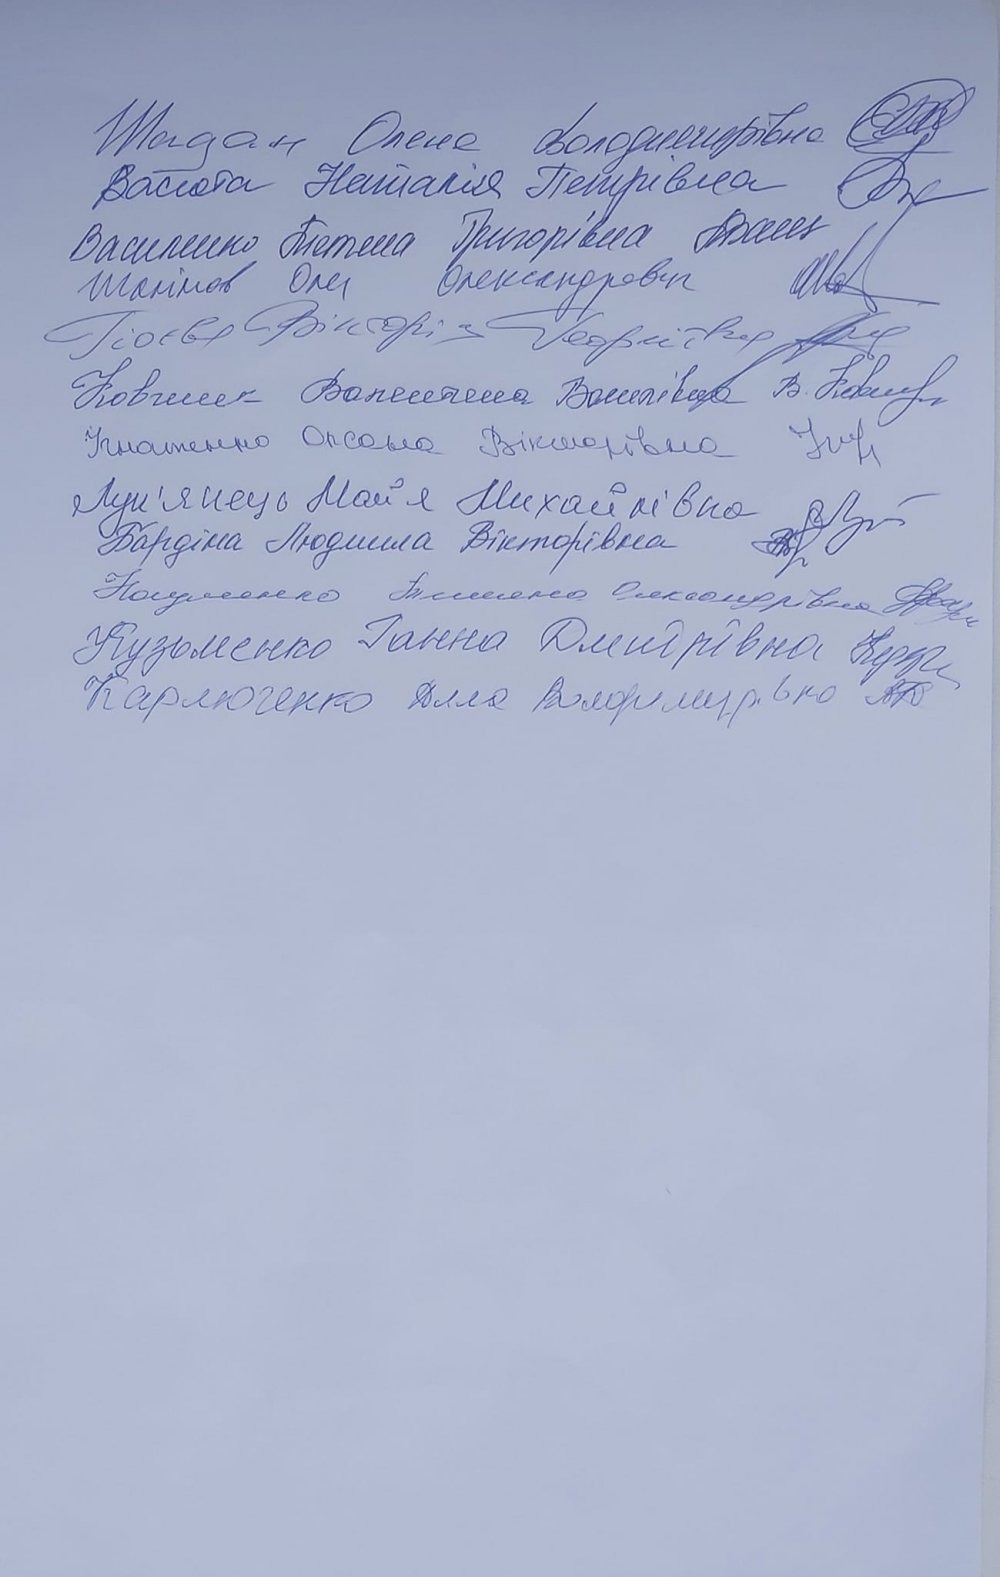 Шадан Олена Володимирівна
Васюта Наталія Петрівна
Василенко Тетяна Григорівна
Шалімов Олег Олександрович
Гіоєва Вікторія Георгіївна
Ковчик Валентина Василівна В.
Ігнатенко Оксана Вікторівна
Лук'янець Майя Михайлівна
Бардіна Людмила Вікторівна
Науменко Олександрівна
Кузьменко Ганна Дмитрівна
Карлюченко Алла Володимирівна